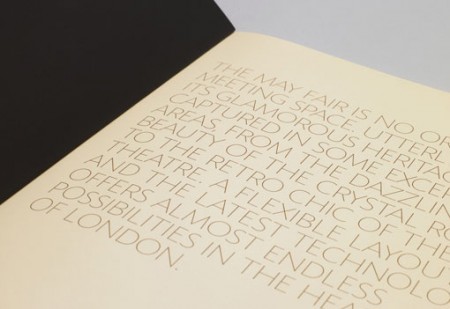 THE MAY FAIR IS NO OR
MEETING SPACE. UTTERL
ITS GLAMOROUS HERITAG
CAPTURED IN SOME EXCE
AREAS, FROM THE DAZZLIN
BEAUTY OF THE CRYSTAL RO
TO THE RETRO CHIC OF THE
THEATRE. A FLEXIBLE LAYOU
AND THE LATEST TECHNOLO
OFFERS ALMOST ENDLESS
POSSIBILITIES IN THE HEA
OF LONDON.